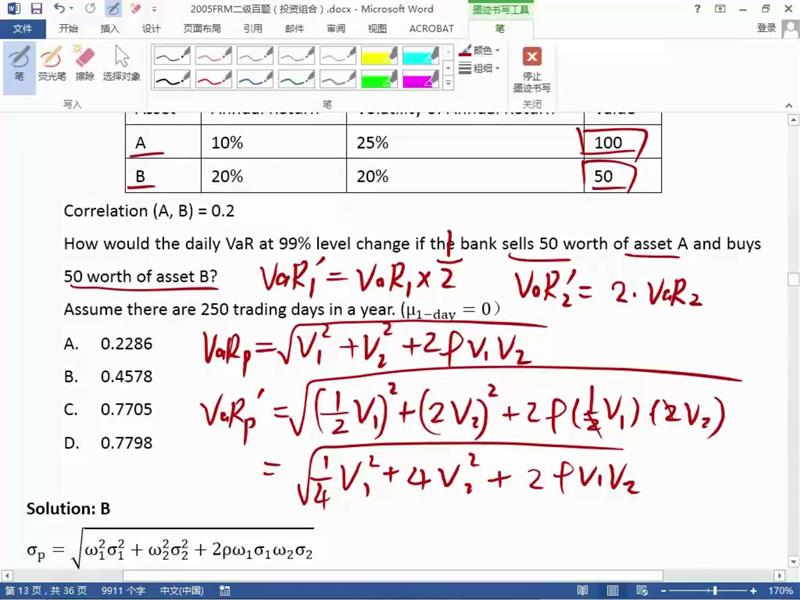 2005FRM二级百题（投资组合）.docx - Microsoft Word
墨迹书写工具
文件 开始 插入 设计 页面布局 引用 邮件 审阅 视图 ACROBAT 笔 登录
笔 荧光笔 擦除 选择对象 颜色 粗细 停止墨迹书写
写入 笔 关闭
A 10% 25% 100
B 20% 20% 50
Correlation (A, B) = 0.2
How would the daily VaR at 99% level change if the bank sells 50 worth of asset A and buys
50 worth of asset B? VaR₁′ = VaR₁ × 1/2 VaR₂′ = 2 · VaR₂
Assume there are 250 trading days in a year. (μ₁₋day = 0)
A. 0.2286 VaRp = √(V₁² + V₂² + 2ρV₁V₂)
B. 0.4578
C. 0.7705 VaRp′ = √((1/2 V₁)² + (2V₂)² + 2ρ(1/2 V₁)(2V₂))
D. 0.7798
= √(1/4 V₁² + 4V₂² + 2ρV₁V₂)
Solution: B
σp = √(ω₁²σ₁² + ω₂²σ₂² + 2ρω₁σ₁ω₂σ₂)
第 13 页，共 36 页 9911 个字 中文(中国) 170%